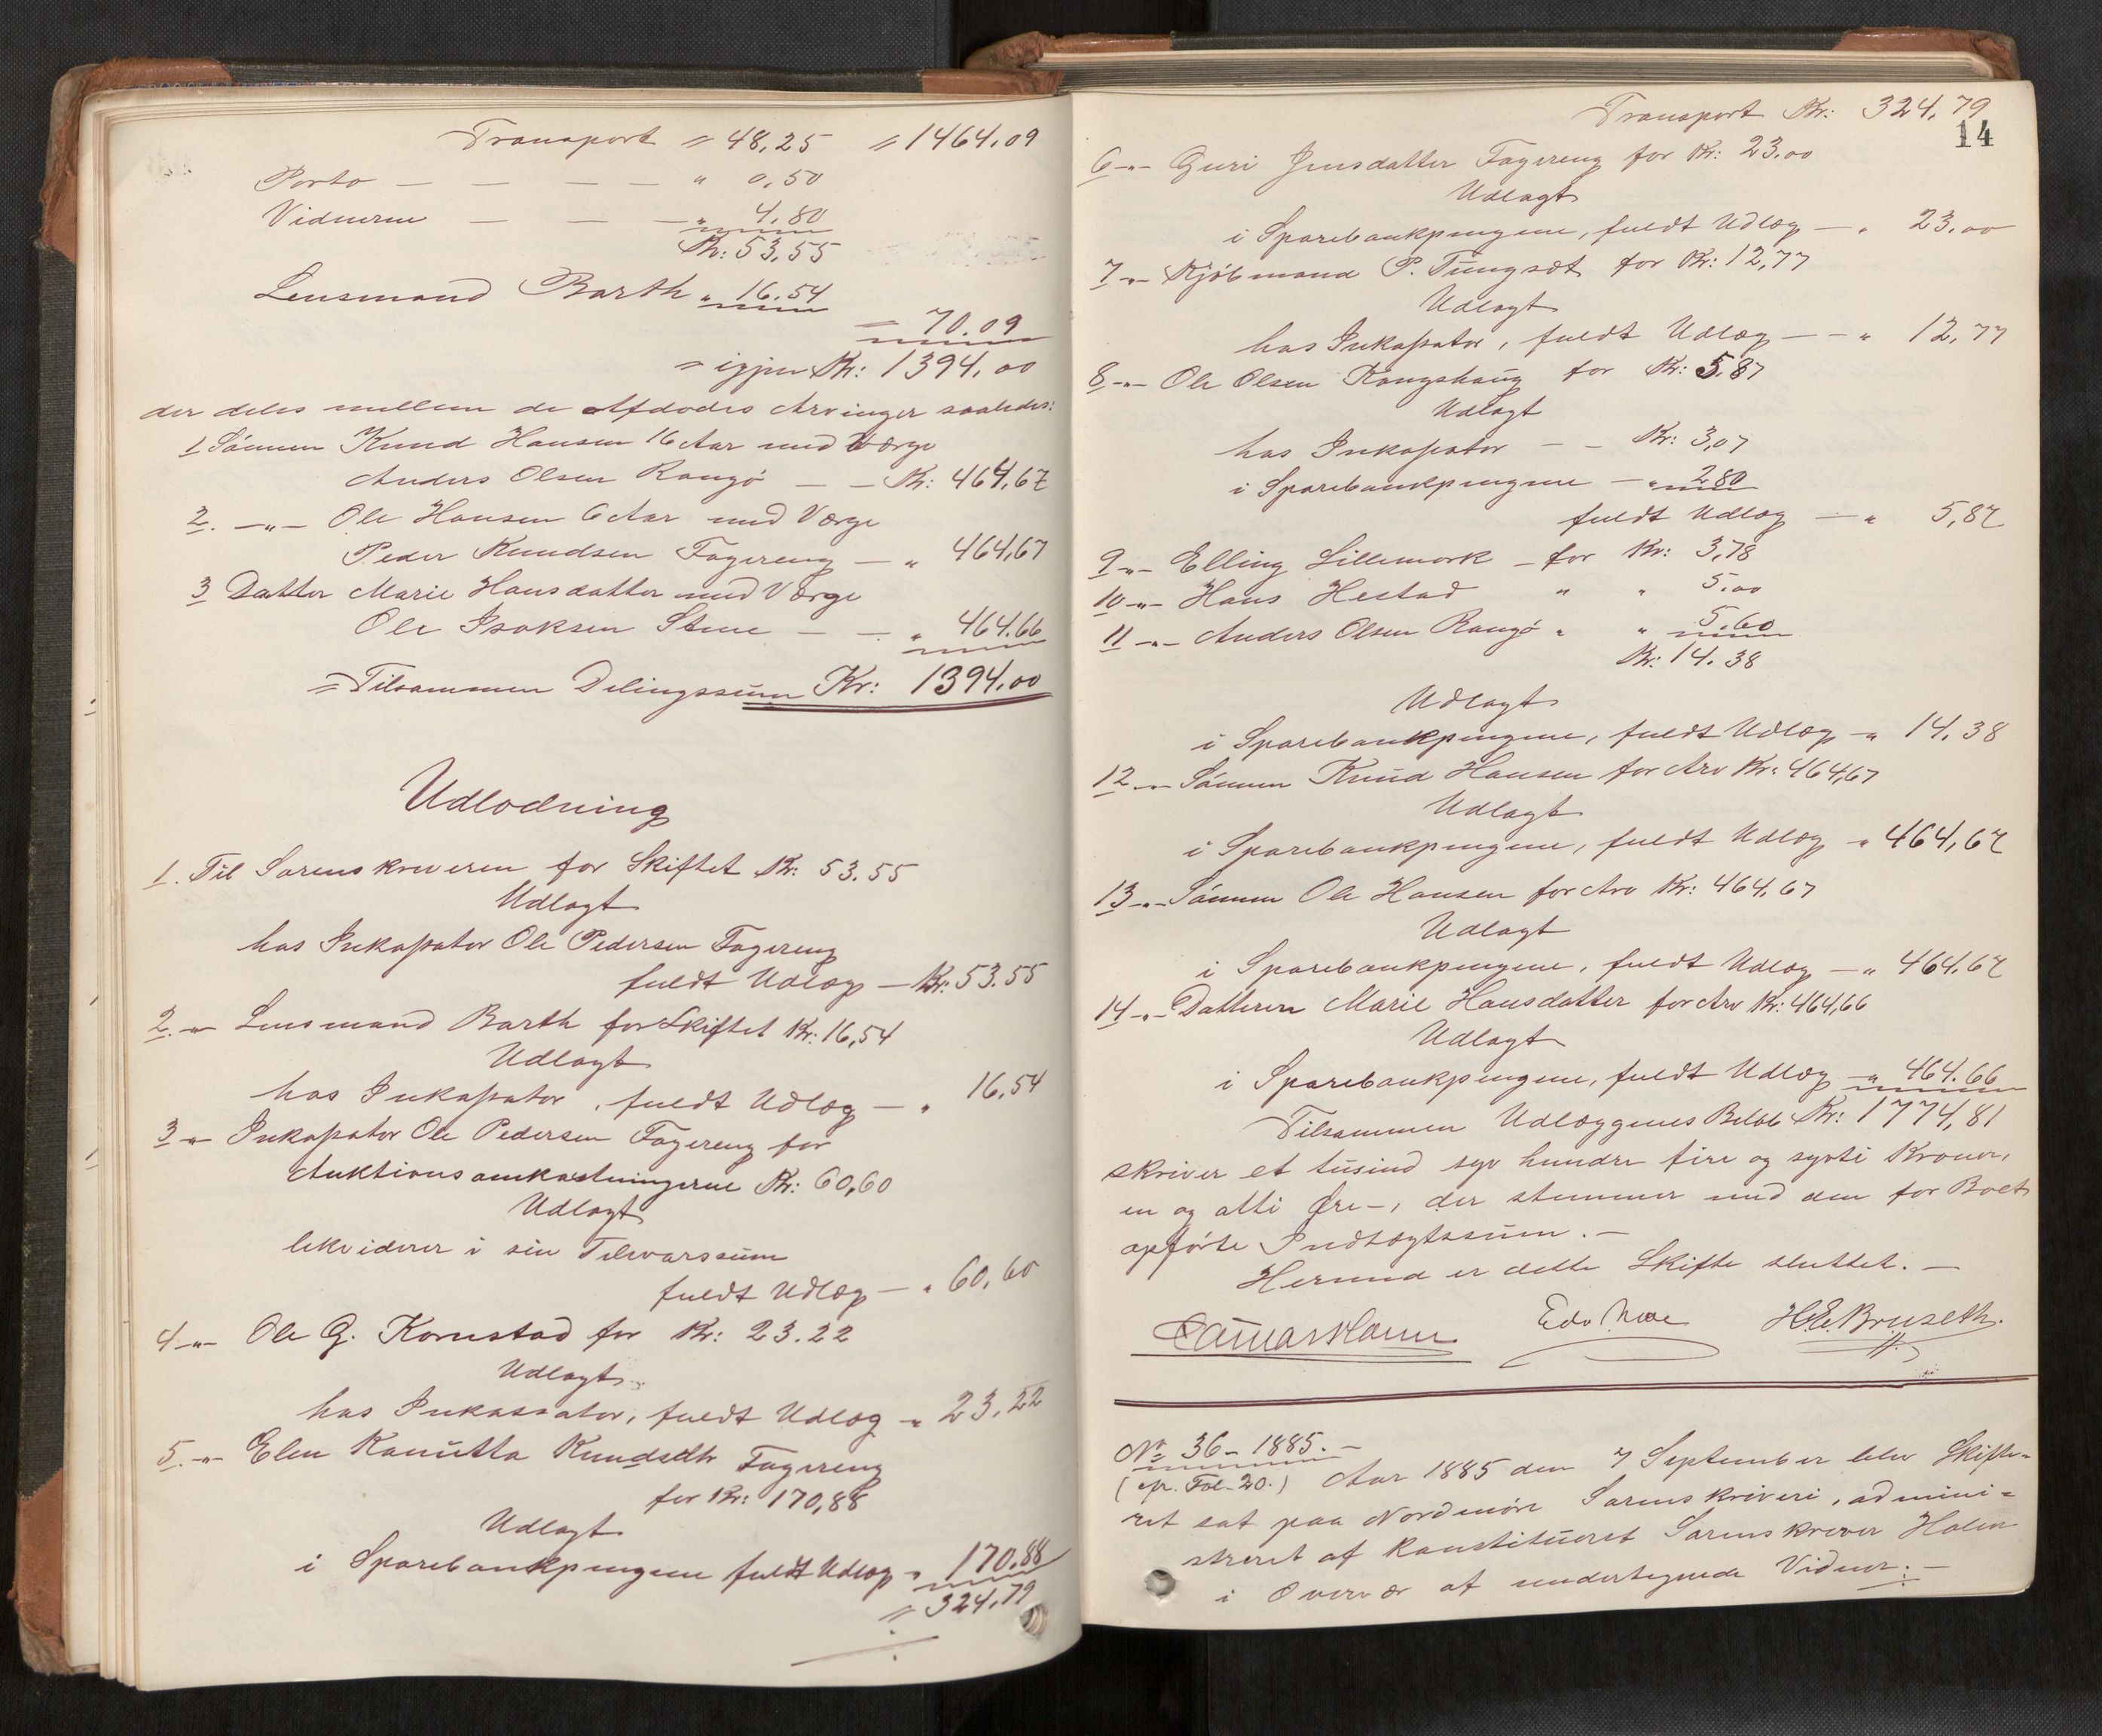 Transport " 48,25 " 1464.09
Porto — — — — " 0,50
Vidnerne — — — " 4,80
Kr: 53,55
Lensmand Barth " 16.54
= 70.09
= igjen Kr: 1394,00
der deles mellem de Afdødes Arvinger saaledes:
1 Sønnen Knud Hansen 16 Aar med Værge
Anders Olsen Rangø — — Kr: 464,67
2. —"— Ole Hansen 6 Aar med Værge
Peder Knudsen Fagereng — " 464,67
3 Datter Marie Hansdatter med Værge
Ole Isaksen Stene — — " 464.66
= Tilsammen Delingssum Kr: 1394.00
Udlodning
1. Til Sorenskriveren for Skiftet Kr: 53.55
Udlagt
hos Inkassator Ole Pedersen Fagereng
fuldt Udlæg — Kr: 53.55
2. —"— Lensmand Barth for Skiftet Kr: 16,54
Udlagt
hos Inkassator, fuldt Udlæg — " 16,54
3 —"— Inkassator Ole Pedersen Fagereng for
Auktionsomkostningerne Kr: 60,60
Udlagt
likviderer i sin Tilsvarssum
fuldt Udlæg — " 60,60
4 —"— Ole G. Kornstad for Kr: 23.22
Udlagt
hos Inkassator, fuldt Udlæg —" 23.22
5. —"— Elen Kanutta Knudsdtr Fagereng
for Kr: 170,88
Udlagt
i Sparebankpengene fuldt Udlæg " 170.88
= 324,79
14
Transport Kr: 324,79
6 —"— Guri Jensdatter Fagereng for Kr: 23.00
Udlagt
i Sparebankpengene, fuldt Udlæg — " 23.00
7 —"— Kjøbmand P. Tungsæt for Kr: 12,77
Udlagt
hos Inkassator, fuldt Udlæg — — " 12,77
8 —"— Ole Olsen Kongshaug for Kr: 5.87
Udlagt
hos Inkassator — — Kr: 3,07
i Sparebankpengene — " 2.80
fuldt Udlæg — " 5,87
9 —"— Elling Lillemork — for Kr: 3,78
10 —"— Hans Hestad " " 5.00
11 —"— Anders Olsen Rangø " " 5.60
Kr: 14.38
Udlagt
i Sparebankpengene, fuldt Udlæg —" 14.38
12 —"— Sønnen Knud Hansen for Arv Kr: 464,67
Udlagt
i Sparebankpengene, fuldt Udlæg —" 464,67
13 —"— Sønnen Ole Hansen for Arv Kr: 464,67
Udlagt
i Sparebankpengene, fuldt Udlæg —" 464.67
14 —"— Datteren Marie Hansdatter for Arv Kr: 464,66
Udlagt
i Sparebankpengene, fuldt Udlæg —" 464.66
Tilsammen Udlæggenes Beløb Kr: 1774,81
skriver et tusind syv hundre fire og sytti Kroner,
en og otti Øre —, der stemmer med den for Boet
opførte Indtægtssum. —
Hermed er dette Skifte sluttet. —
Edv. Moe H.E. Bruseth.
No 36 – 1885. —
(cfr. Fol. 20.) Aar 1885 den 7 September blev Skifte-
ret sat paa Nordmøre Sorenskriveri, admini-
streret af konstitueret Sorenskriver Holm
i Overvær af undertegnede Vidner: —